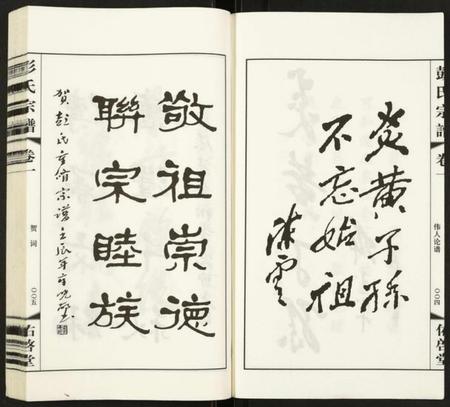 彭氏宗譜
卷一
伟人论谱
〇〇四
佑啓堂
炎黄子孫
不忘始祖
陳雲
敬祖崇德
聯宗睦族
賀彭氏重修宗譜壬辰年
彭氏宗譜
卷一
贺词
〇〇五
佑啓堂